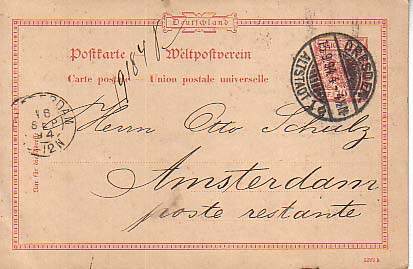 Deutschland
Postkarte Weltpostverein
Carte postale Union postale universelle
DRESDEN
ALTSTADT
18
SEP
12N
Herrn Otto Schulz
Amsterdam
poste restante